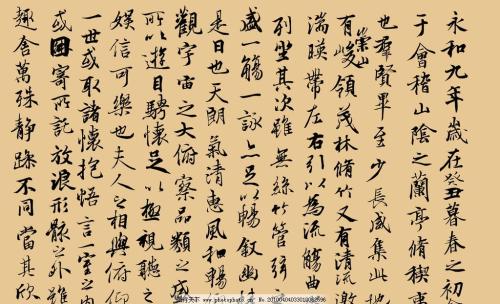 永和九年歲在癸丑暮春之初
于會稽山陰之蘭亭脩稧事
也羣賢畢至少長咸集此地
有崇山峻領茂林脩竹又有清流激
湍暎帶左右引以為流觴曲
列坐其次雖無絲竹管弦
盛一觴一詠亦足以暢敘幽情
是日也天朗氣清惠風和暢
觀宇宙之大俯察品類之盛
所以遊目騁懷足以極視聽之
娛信可樂也夫人之相與俯仰
一世或取諸懷抱悟言一室之內
或因寄所託放浪形骸之外雖
趣舍萬殊靜躁不同當其欣